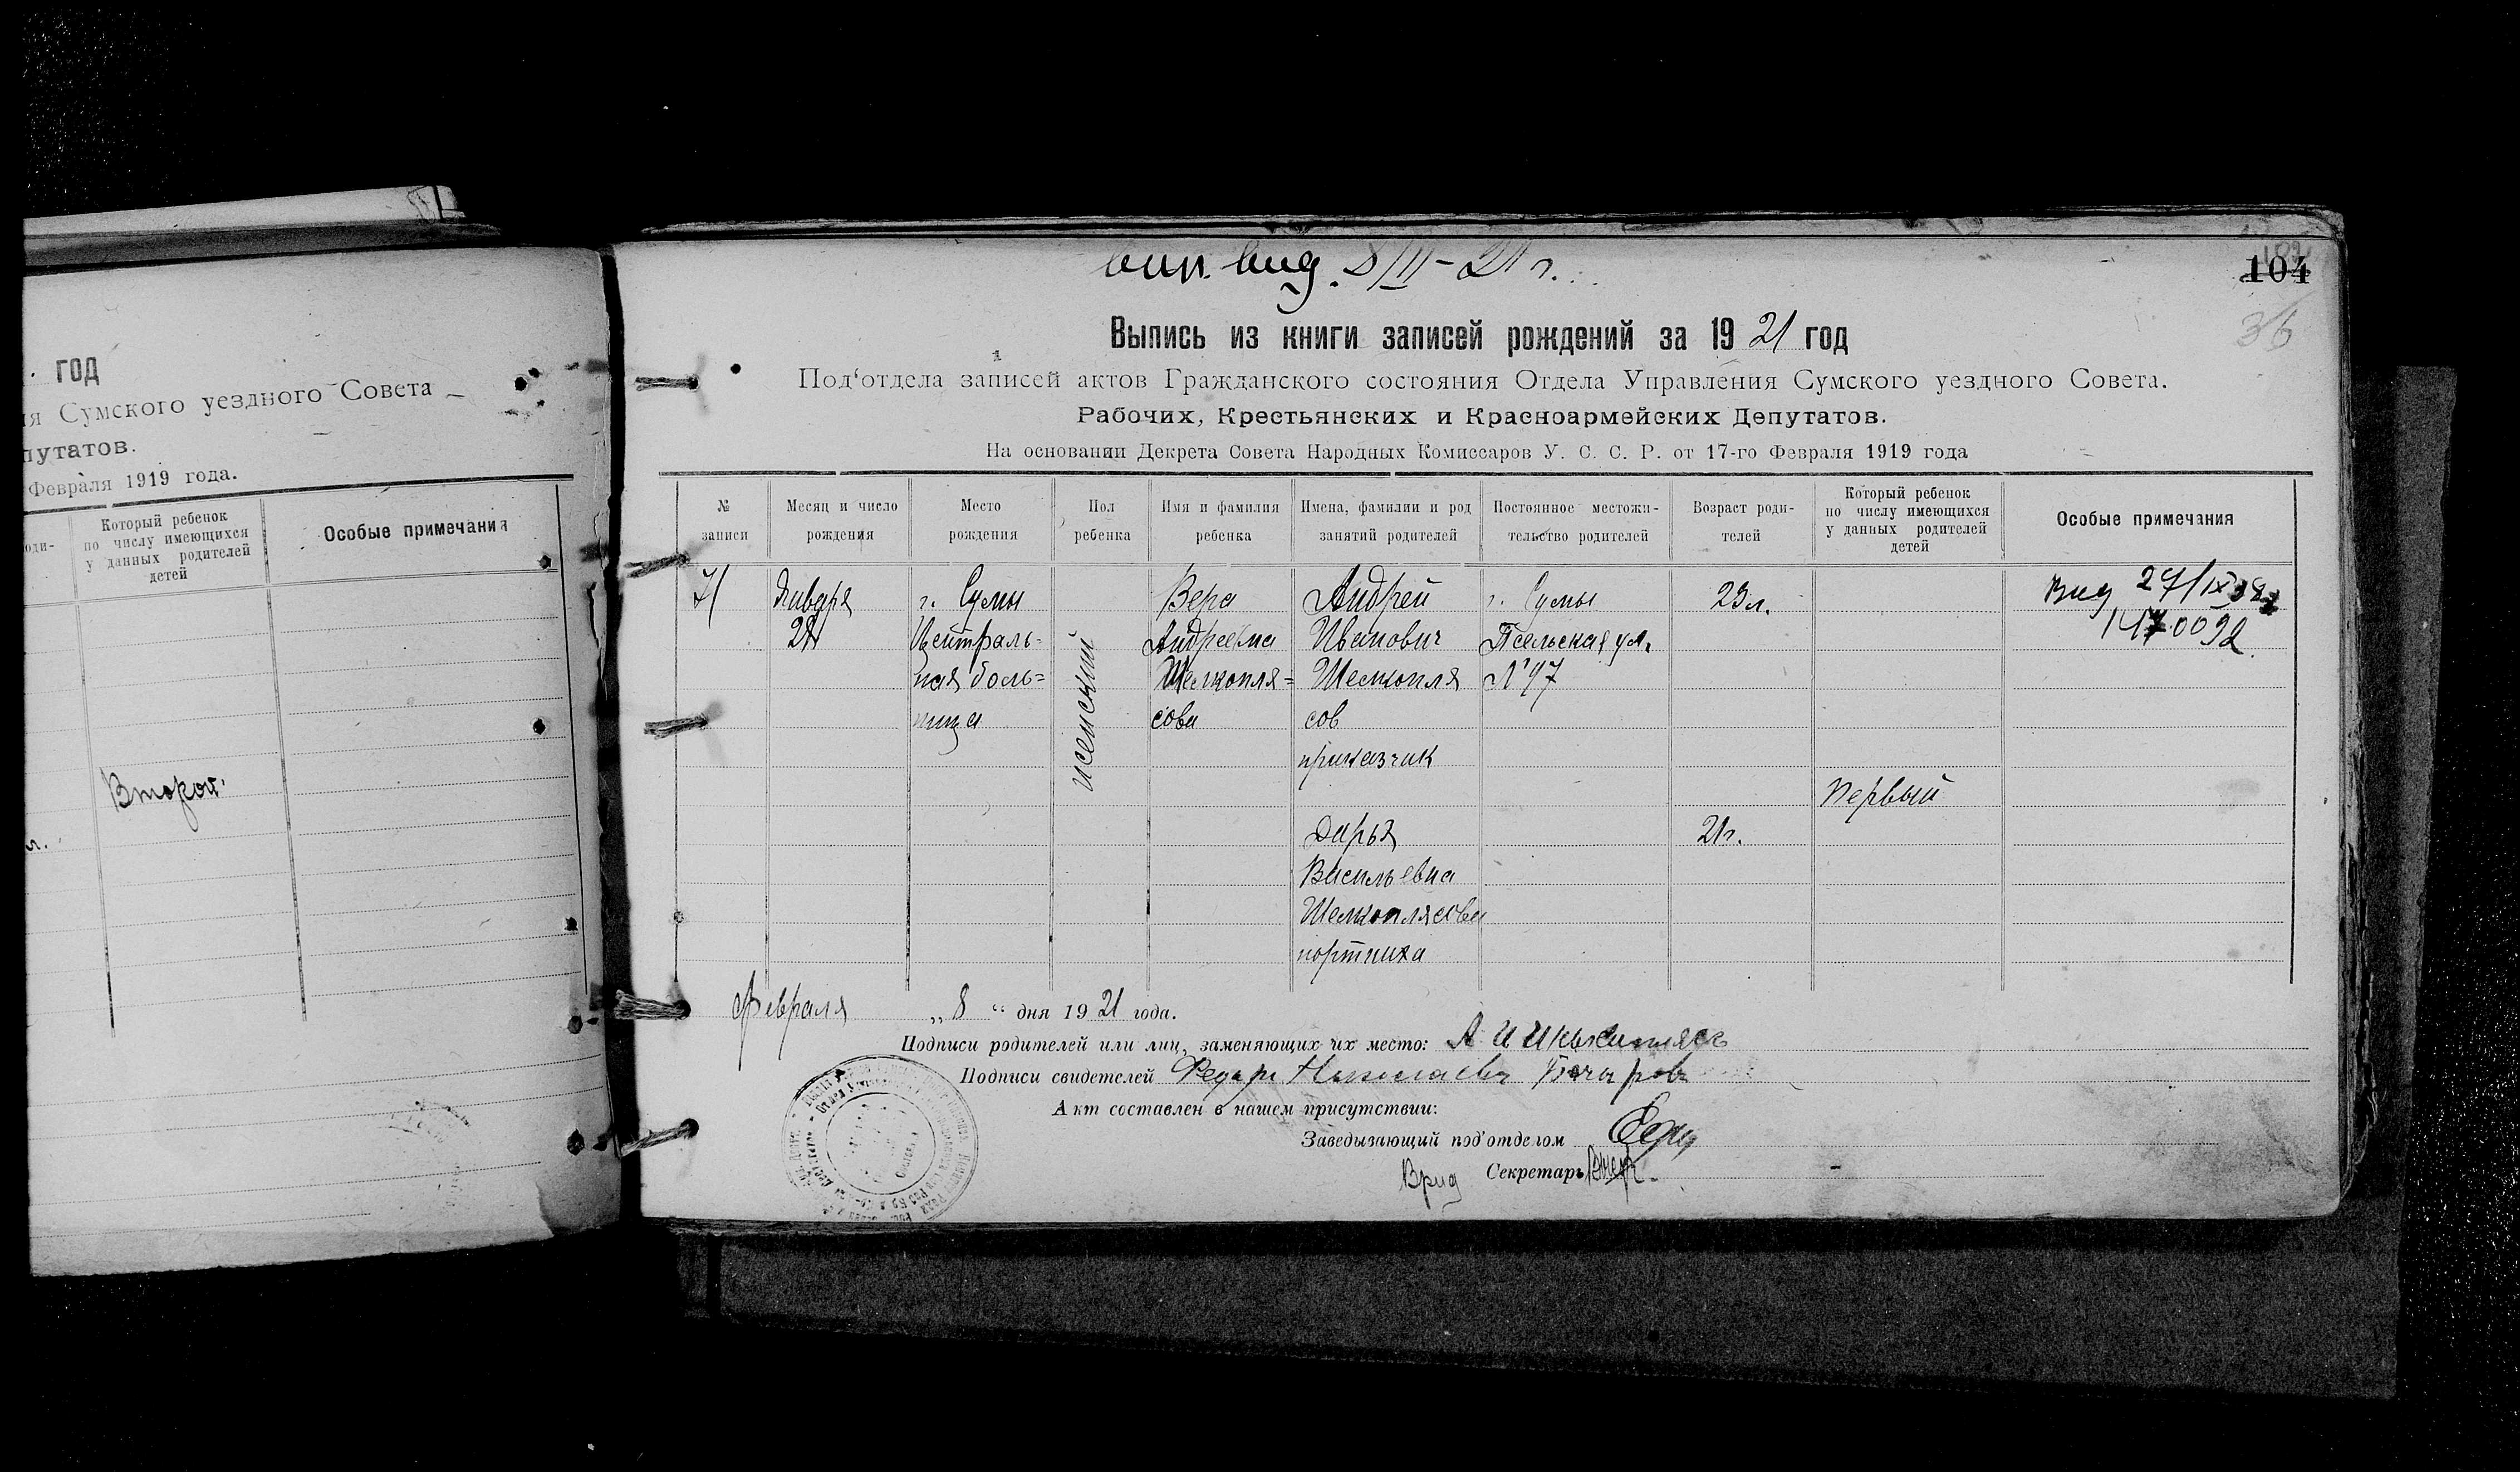 год
ия Сумского уездного Совета
путатов.
Февраля 1919 года.
Который ребенок
по числу имеющихся
у данных родителей
детей
Особые примечания
Второй
вип. вид. 8/II-21 г.
104
36
Выпись из книги записей рождений за 1921 год
Под‘отдела записей актов Гражданского состояния Отдела Управления Сумского уездного Совета.
Рабочих, Крестьянских и Красноармейских Депутатов.
На основании Декрета Совета Народных Комиссаров У. С. С. Р. от 17-го Февраля 1919 года
№
записи
Месяц и число
рождения
Место
рождения
Пол
ребенка
Имя и фамилия
ребенка
Имена, фамилии и род
занятий родителей
Постоянное местожи-
тельство родителей
Возраст роди-
телей
Который ребенок
по числу имеющихся
у данных родителей
детей
Особые примечания
71
Января
г. Сумы
Централь=
ная боль=
ница
женский
Вера
Андреевна
Шелкопля=
сова
Андрей
Иванович
Шелкопля
сов
приказчик
Дарья
Васильевна
Шелкоплясова
портниха
г. Сумы
Псельская ул.
23 л.
21 г.
Первый
Вид 27/IX
Февраля „8“ дня 1921 года.
Подписи родителей или лиц, заменяющих их место: А И
Подписи свидетелей Федор Николаевич Бочаров
Акт составлен в нашем присутствии:
Заведывающий под‘отделом
Врид Секретарь